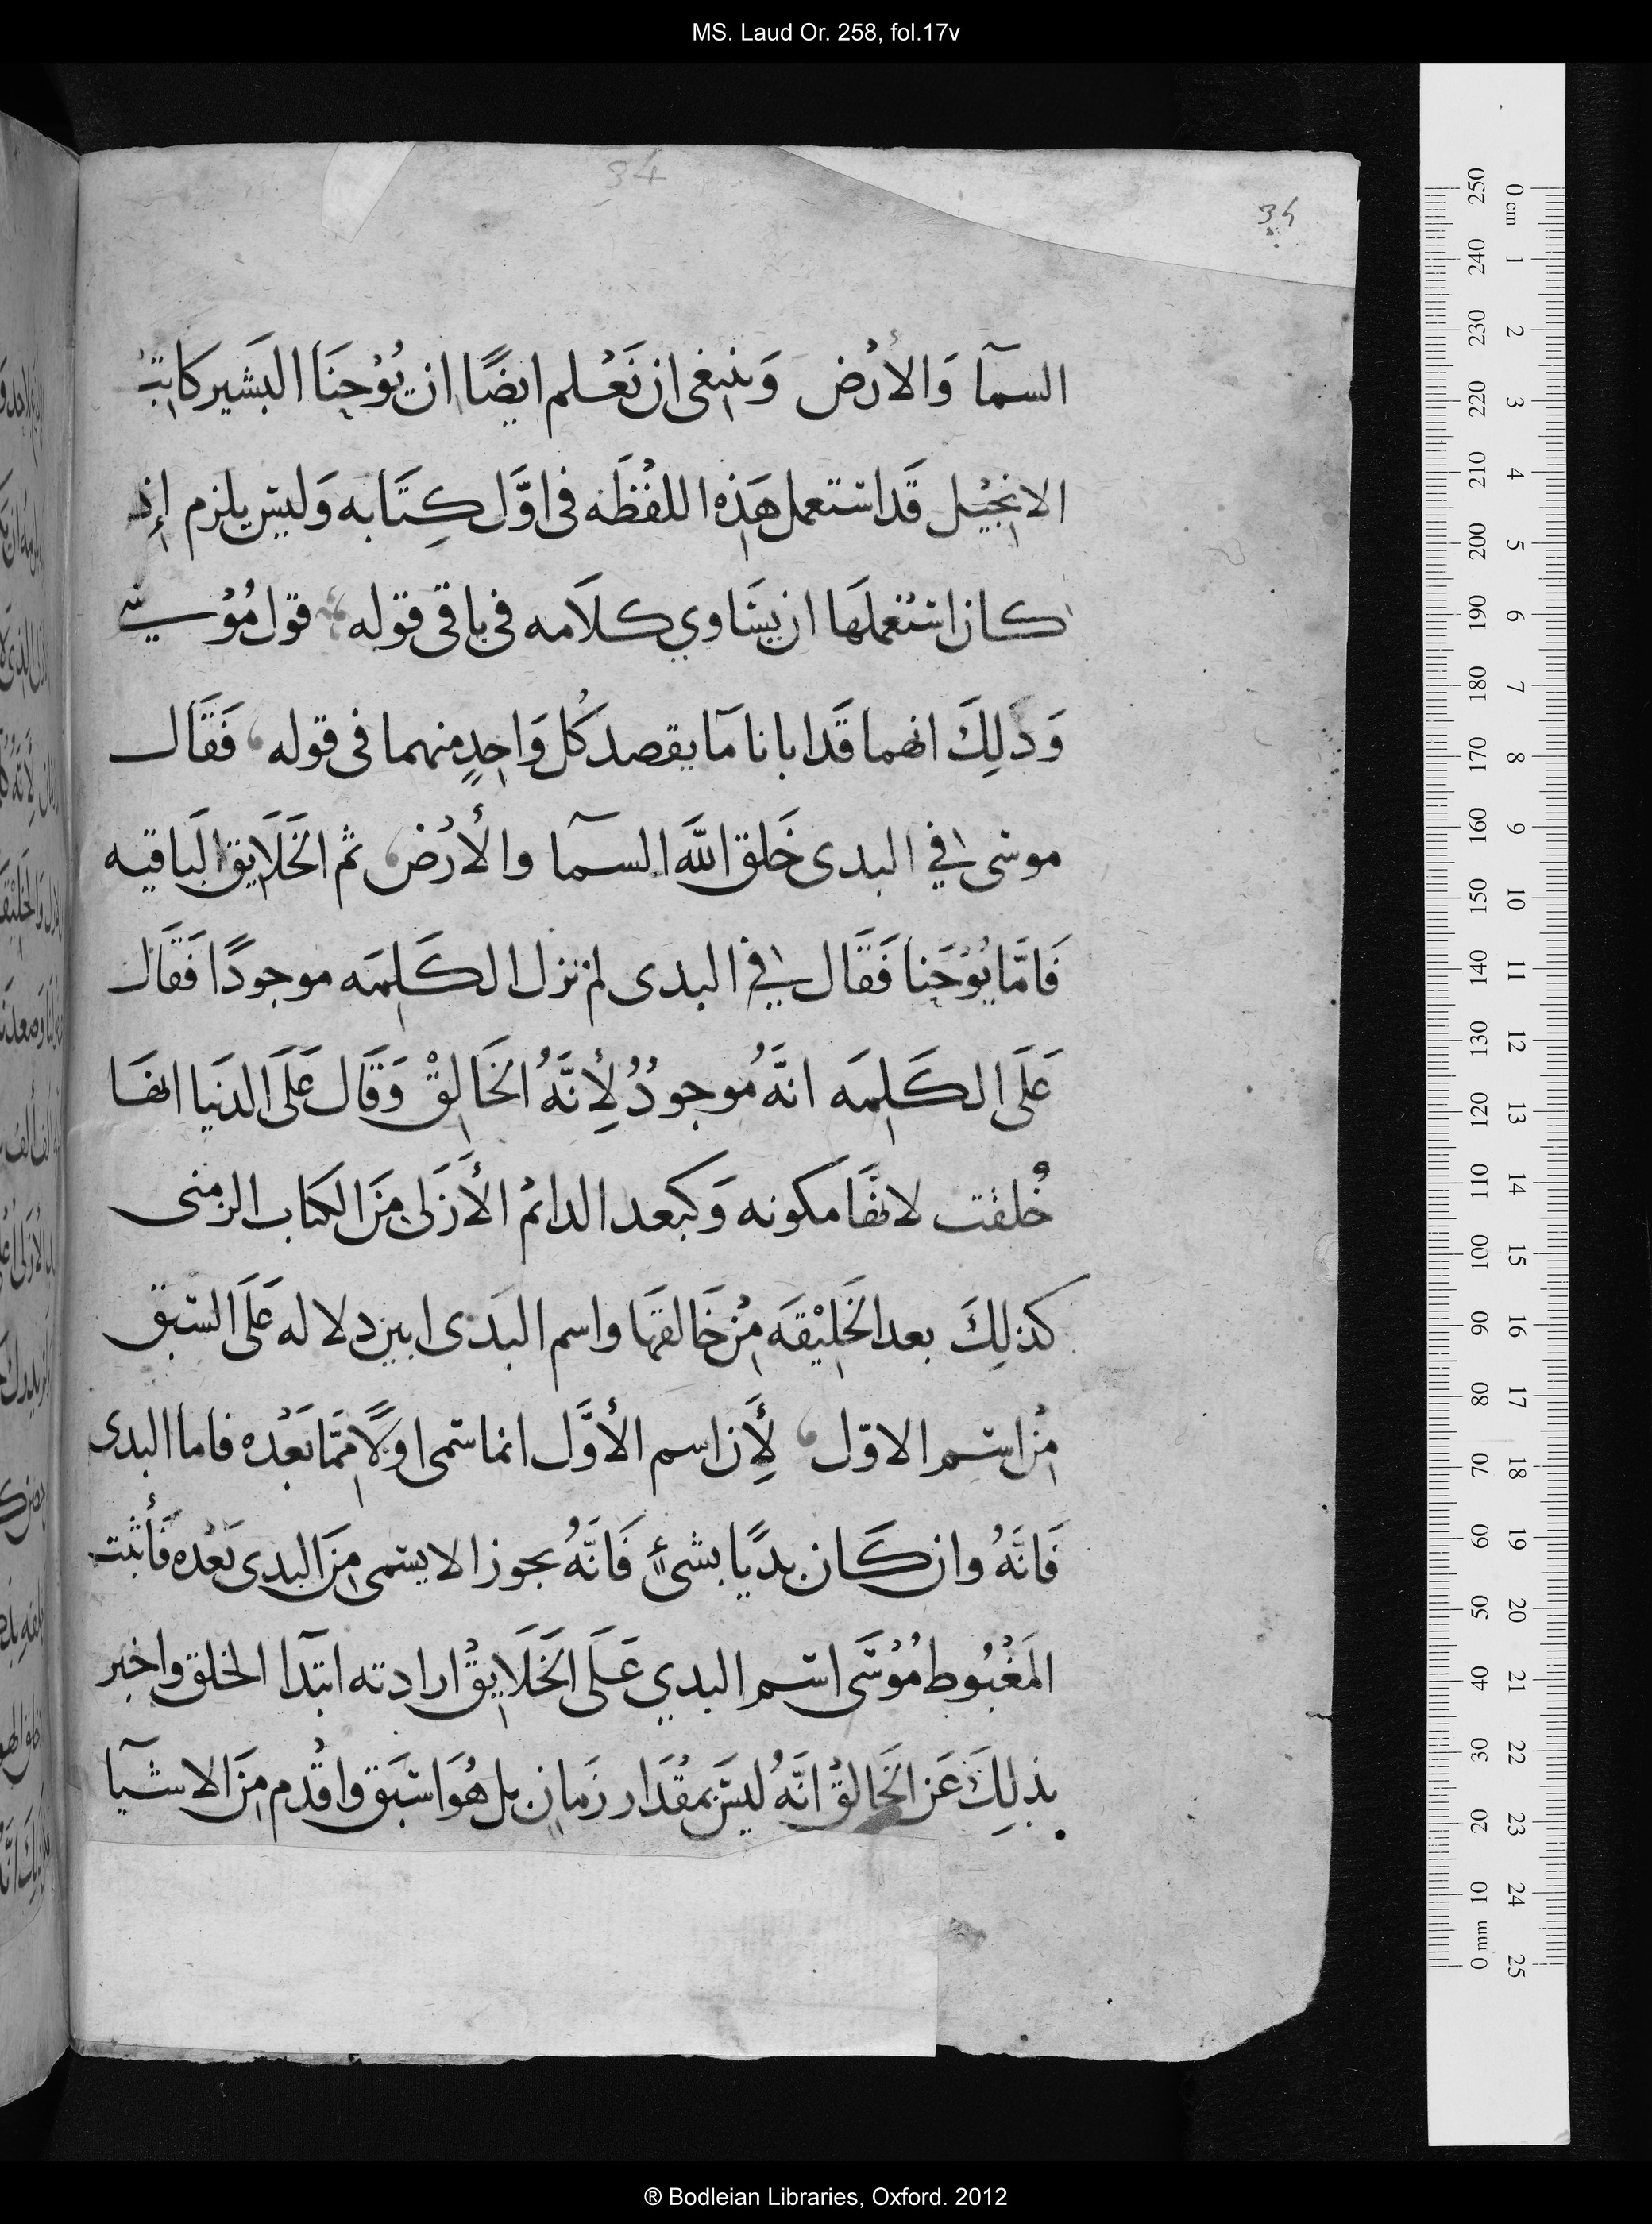 MS. Laud Or. 258, fol.17v
34
34
السمآ وَالأرْض وَينبغى ان نَعْلم ايضًا ان يُوْحِنَا البَشير كاتبُ
الانِجيْل قَد استعمل هَذِه اللفْظَه فى اوَّل كِتَابه وَليسَ يلزم إِذ
كان اسْتعملَهَا ان يسَاوي كلَامه فى باقى قوله قول مُوْسى
وَذلِكَ انهما قَد ابانا مَا يقصد كُل وَاحِدٍ منهما فى قوله فَقَال
موسَى في البدى خَلق اللَه السمآ والأرْض ثم الخَلَايق البَاقيه
فَامَّا يُوْحَنا فَقَال في البدى لم تزل الكَلِمَه موجودًا فَقَال
عَلَى الكَلِمَه انَّهُ مُوجودٌ لِأنَّهُ الخَالِقْ وَقَال عَلَى الدنيا انهَا
خُلقت لانهَا مكونه وَكبعد الدائم الأَزَلى مِنَ الكتاب الزمنى
كذلِكَ بعد الخَلِيْقَه مِنْ خَالقهَا واسم البَدَى ابين دلاله عَلَى السَبق
مِنْ اسم الاوّل لِأَن اسم الأوَّل انما سَمى اولًا مِمَّا بَعْدَه فاما البدى
فَانَّهُ وان كَان بديًا بشىءٍ فَانَّهُ يجوز الا يسَمى مِنَ البدى بَعْده فَأَثبت
المَغْبُوط مُوْسَى اسَم البدي عَلَى الخَلَايِقْ ارادته ابتدآ الخلق واخبر
بذلِكَ عَن الخَالِقْ انَّهُ ليسَ بمقْدَار زَمَانٍ بل هُوَ اسبَق واقْدم مِنَ الاشيآ
250 240 230 220 210 200 190 180 170 160 150 140 130 120 110 100 90 80 70 60 50 40 30 20 10 0 mm
0 cm 1 2 3 4 5 6 7 8 9 10 11 12 13 14 15 16 17 18 19 20 21 22 23 24 25
® Bodleian Libraries, Oxford. 2012